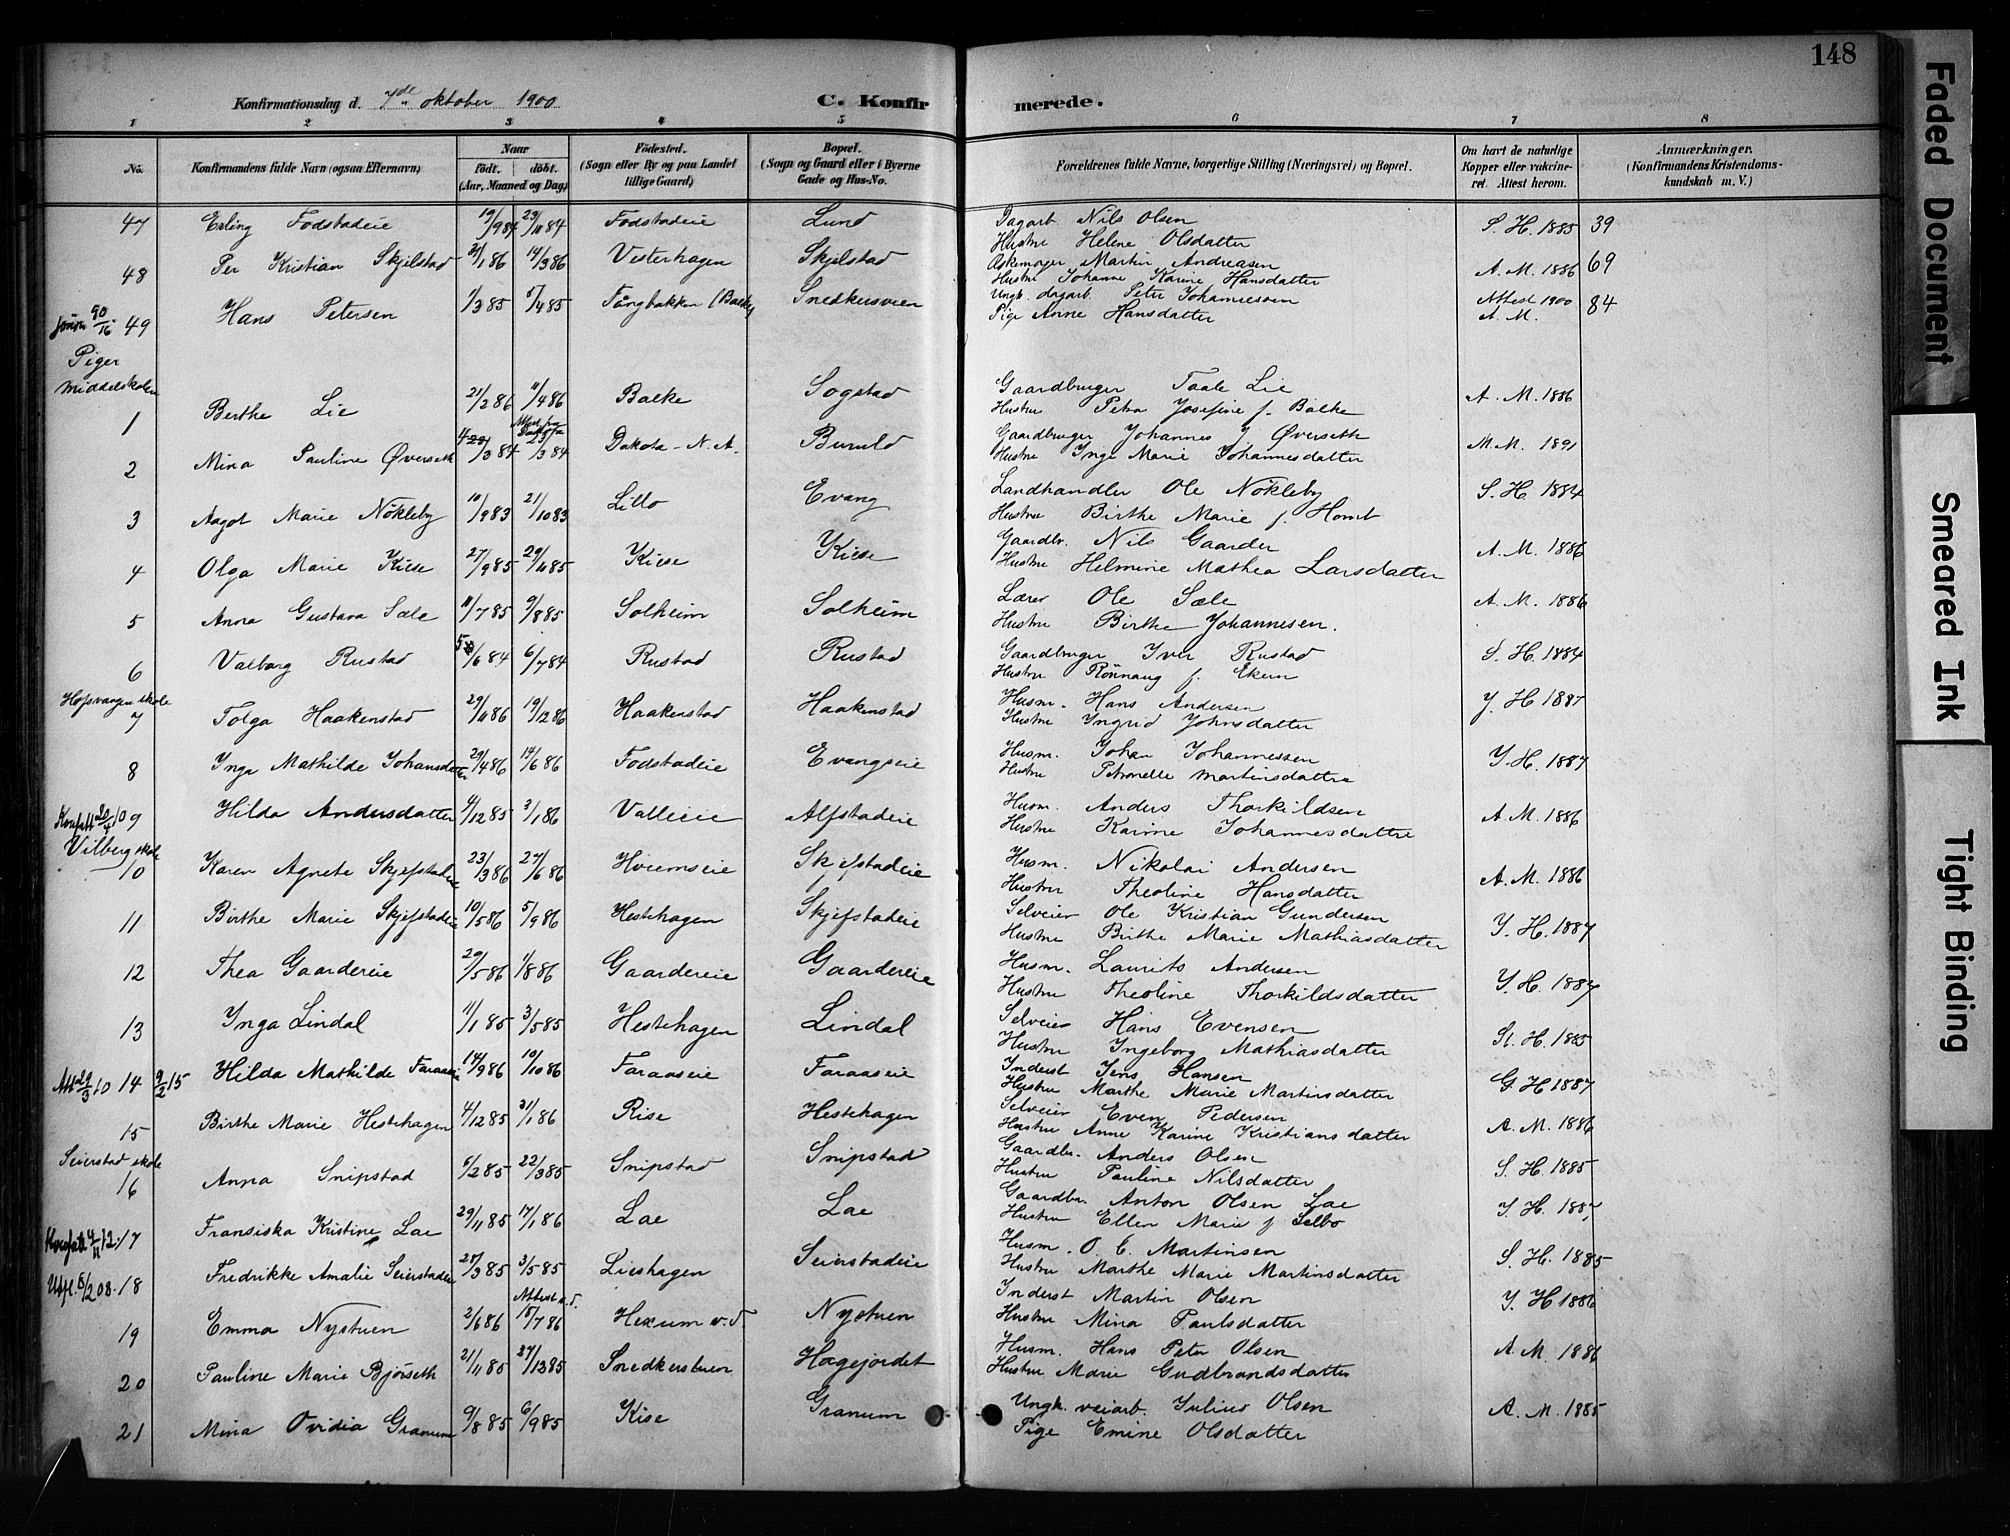 148
Konfirmationsdag d. 7de oktober 1900 C. Konfirmerede.
1 2 3 4 5 6 7 8
No. Konfirmandens fulde Navn (ogsaa Efternavn) Naar født. døbt. (Aar, Maaned og Dag) Fødested. (Sogn eller By og paa Landet tillige Gaard) Bopæl. (Sogn og Gaard eller i Byerne Gade og Hus-No. Forældrenes fulde Navne, borgerlige Stilling (Næringsvei) og Bopæl. Om havt de naturlige Kopper eller vakcineret. Attest herom. Anmærkninger. (Konfirmandens Kristendomskundskab m. V.)
47 Erling Fodstadeie 19/9 84 23/11 84 Fodstadeie Lund Dagarb. Nils Olsen S. H. 1885 39
Hustru Helene Olsdatter
48 Per Kristian Skjelstad 21/1 86 14/3 86 Vesterhagen Skjelstad Martin Andreasen A. M. 1886 69
Hustru Johanne Karine Hansdatter
49 Hans Petersen 1/3 85 5/4 85 Fångbakken (Balke) Snedkersveen Ungk. dagarb. Peter Johannesen Attest 1900 A. M. 84
Pige Anne Hansdatter
Piger
Middelskolen
1 Berthe Lie 21/2 86 11/4 86 Balke Sogstad Gaardbruger Taale Lie A. M. 1886
Hustru Petra Josefine f. Balke
2 Mina Pauline Øverseth 4/3 84 23/3 84 Dakota - N. A. Buruld Gaardbruger Johannes J Øverseth M. M. 1891
Hustru Inge Marie Johannesdatter
3 Aagot Marie Nökleby 10/9 83 21/10 83 Lillo Evang Landhandler Ole Nökleby S. H. 1884
Hustru Birthe Marie f. Homb
4 Olga Marie Kise 27/9 85 29/11 85 Kise Kise Gaardbr. Nils Gaarder A. M. 1886
Hustru Helmine Mathea Larsdatter
5 Anna Gustava Sæle 11/7 85 9/8 85 Solheim Solheim Lærer Ole Sæle A. M. 1886
Hustru Birthe Johannesen.
6 Valborg Rustad 5/6 84 6/7 84 Rustad Rustad Gaardbruger Iver Rustad S. H. 1884
Hustru Rönnaug f. Ekern
Hofsvangen skole
7 Tolga Haakenstad 29/11 86 19/12 86 Haakenstad Haakenstad Husm. Hans Andersen Y. H 1887
Hustru Ingrid Johnsdatter
8 Inga Mathilde Johansdatter 29/4 86 14/6 86 Fodstadeie Evangseie Husm. Johan Johannessen Y. H. 1887
Hustru Petronelle Martinsdatter
9 Hilda Andersdatter 4/12 85 3/1 86 Valleeie Alfstadeie Husm. Anders Thorkildsen A. M. 1886
Hustru Karine Johannesdatter
Vilberg skole
10 Karen Agnete Skjefstadeie 23/3 86 27/6 86 Hveemseie Skjefstadeie Husm. Nikolai Andersen A. M. 1886
Hustru Theoline Hansdatter
11 Birthe Marie Skjefstadeie 10/5 86 5/9 86 Hestehagen Skjefstadeie Selveier Ole Kristian Gundersen Y. H. 1887
Hustru Birthe Marie Mathiasdatter
12 Thea Gaardereie 29/5 86 1/8 86 Gaardereie Gaardereie Husm. Laurits Andersen Y. H. 1887
Hustru Theoline Thorkildsdatter
13 Inga Lindal 11/1 85 3/5 85 Hestehagen Lindal Selveier Hans Evensen St. H. 1885
Hustru Ingeborg Mathiasdatter
Att 29/3 10 14 9/2 15 Hilda Mathilde Faraaseie 14/9 86 10/10 86 Faraaseie Faraaseie Inderst Jens Hansen G. H 1887
Hustru Marthe Marie Martinsdatter
15 Birthe Marie Hestehagen 4/12 85 31/1 86 Rise Hestehagen Selveier Even Pedersen A. M. 1886
Hustru Anne Karine Kristiansdatter
Seierstad skole
16 Anna Snipstad 6/2 85 22/3 85 Snipstad Snipstad Gaardbr. Anders Olsen S. H. 1885
Hustru Pauline Nilsdatter
17 Fransiska Kristine Lae 29/11 85 17/1 86 Lae Lae Gaardbr. Anton Olsen Lae Y. H. 1887
Hustru Ellen Marie f Selbo
18 Fredrikke Amalie Seierstadeie 28/3 85 3/5 85 Lieshagen Seierstadeie Husm. O. C. Martinsen S. H. 1885
Hustru Marthe Marie Martinsdatter
19 Emma Nystuen 2/6 86 Attest v. T. 18/7 86 Hexum v. T. Nystuen Inderst Martin Olsen Y. H 1886
Hustru Mina Paulsdatter
20 Pauline Marie Bjørseth 21/11 85 27/12 85 Snedkerstuen Hagejordet Husm. Hans Peter Olsen A. M. 1886
Hustru Marie Gudbrandsdatter
21 Mina Ovidia Granum 9/8 85 6/9 85 Kise Granum Ungk. veiarb. Julius Olsen A. M. 1885
Pige Emine Olsdatter
Faded Document
Smeared Ink
Tight Binding